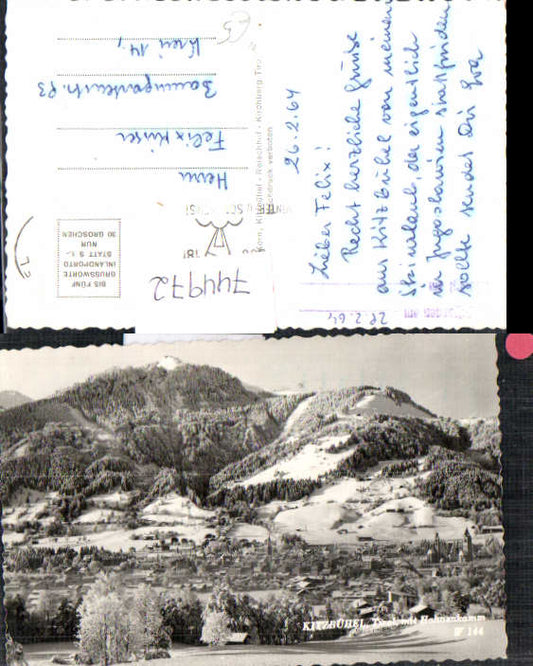 26.2.64
Lieber Felix!
Recht herzliche Grüße
aus Kitzbühel von meinem
Skiurlaub, der eigentlich
in Jugoslawien stattfinden
sollte sendet Dir Eva
28.2.64
Herrn
Felix
Wien 14.,
744972
BIS FÜNF
GRUSSWORTE
INLANDPORTO
STATT S 1.-
NUR
30 GROSCHEN
KITZBÜHEL, Tirol, mit Hahnenkamm
W 144